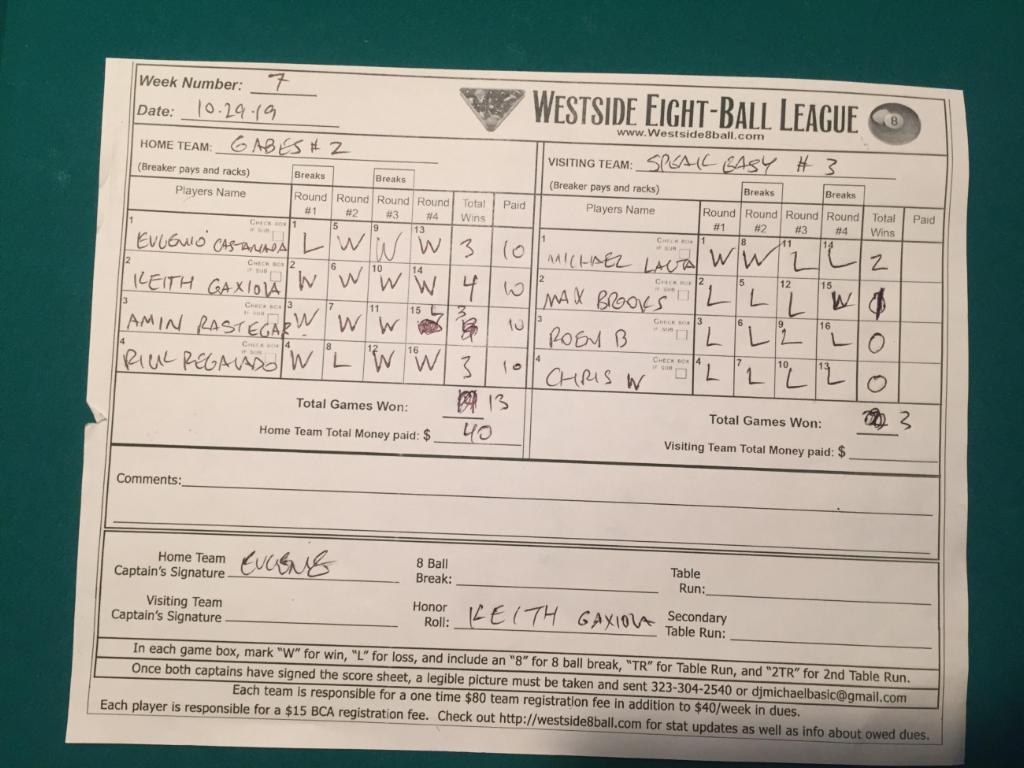 Week Number: 7
Date: 10.29.19
WESTSIDE EIGHT-BALL LEAGUE
www.Westside8ball.com
8
HOME TEAM: GABES # 2
(Breaker pays and racks)
Breaks Breaks
Players Name Round #1 Round #2 Round #3 Round #4 Total Wins Paid
1 EUGENIO CASTANADA CHECK BOX IF SUB 1 L 5 W 9 W 13 W 3 10
2 KEITH GAXIOLA CHECK BOX IF SUB 2 W 6 W 10 W 14 W 4 10
3 AMIN RASTEGAR CHECK BOX IF SUB 3 W 7 W 11 W 15 L 3 10
4 RIUL REGALADO CHECK BOX IF SUB 4 W 8 L 12 W 16 W 3 10
Total Games Won: 13
Home Team Total Money paid: $ 40
VISITING TEAM: SPEAK EASY # 3
(Breaker pays and racks)
Breaks Breaks
Players Name Round #1 Round #2 Round #3 Round #4 Total Wins Paid
1 MICHAEL CHECK BOX IF SUB 1 W 8 W 11 L 14 L 2
2 MAX BROOKS CHECK BOX IF SUB 2 L 5 L 12 L 15 W 1
3 ROEM B CHECK BOX IF SUB 3 L 6 L 9 L 16 L 0
4 CHRIS W CHECK BOX IF SUB 4 L 7 L 10 L 13 L 0
Total Games Won: 3
Visiting Team Total Money paid: $
Comments:
Home Team Captain's Signature EUGENE
8 Ball Break:
Table Run:
Visiting Team Captain's Signature
Honor Roll: KEITH GAXIOLA
Secondary Table Run:
In each game box, mark "W" for win, "L" for loss, and include an "8" for 8 ball break, "TR" for Table Run, and "2TR" for 2nd Table Run.
Once both captains have signed the score sheet, a legible picture must be taken and sent 323-304-2540 or djmichaelbasic@gmail.com
Each team is responsible for a one time $80 team registration fee in addition to $40/week in dues.
Each player is responsible for a $15 BCA registration fee. Check out http://westside8ball.com for stat updates as well as info about owed dues.